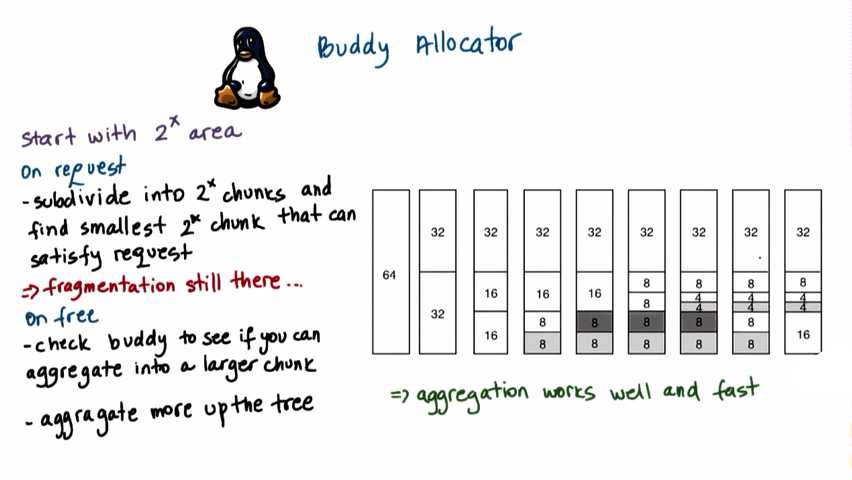 Buddy Allocator
start with 2^x area
on request
-subdivide into 2^x chunks and
find smallest 2^x chunk that can
satisfy request
=> fragmentation still there...
on free
-check buddy to see if you can
aggregate into a larger chunk
- aggragate more up the tree
64
32
32
32
16
16
32
16
8
8
32
16
8
8
32
8
8
8
8
32
8
4
4
8
8
32
8
4
4
8
8
32
8
4
4
16
=> aggregation works well and fast